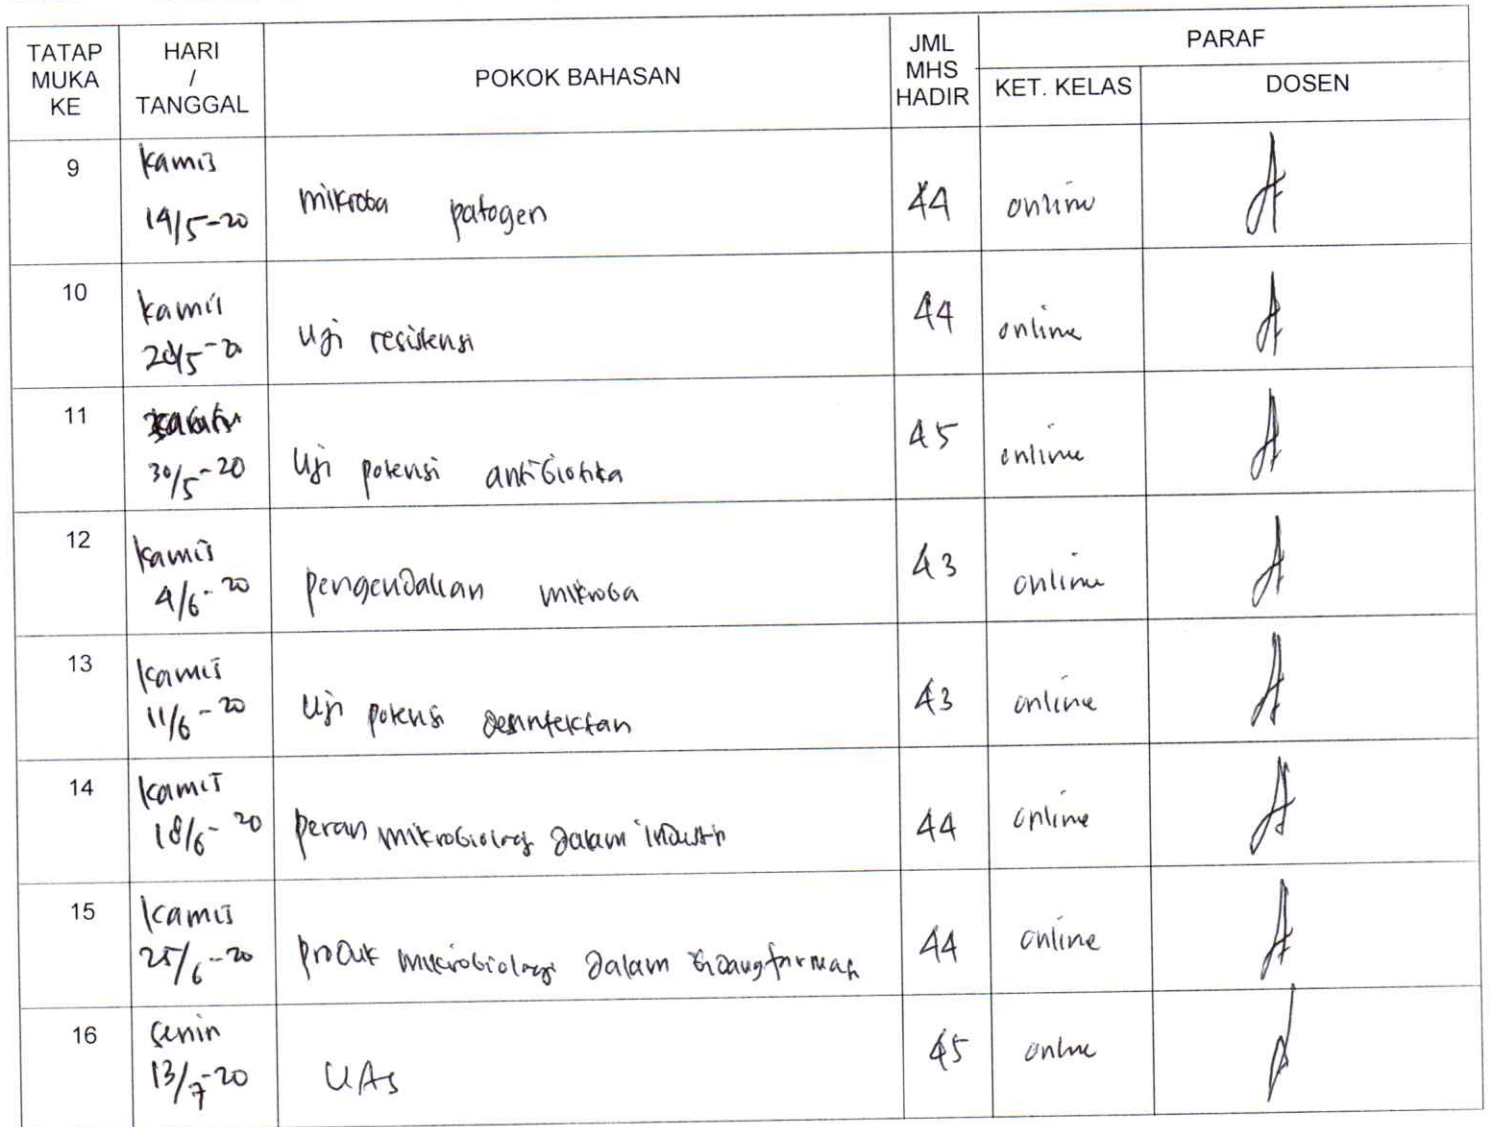 TATAP MUKA KE | HARI / TANGGAL | POKOK BAHASAN | JML MHS HADIR | PARAF
KET. KELAS | DOSEN
9 | Kamis 14/5-20 | mikroba patogen | 44 | online
10 | Kamis /5-20 | Uji resistensi | 44 | online
11 | Sabtu 30/5-20 | Uji potensi antibiotika | 45 | online
12 | Kamis 4/6-20 | pengendalian mikroba | 43 | online
13 | Kamis 11/6-20 | Uji potensi desinfektan | 43 | online
14 | Kamis 18/6-20 | peran mikrobiologi dalam industri | 44 | online
15 | Kamis 25/6-20 | produk mikrobiologi dalam bidang farmasi | 44 | online
16 | Senin 13/7-20 | UAS | 45 | online